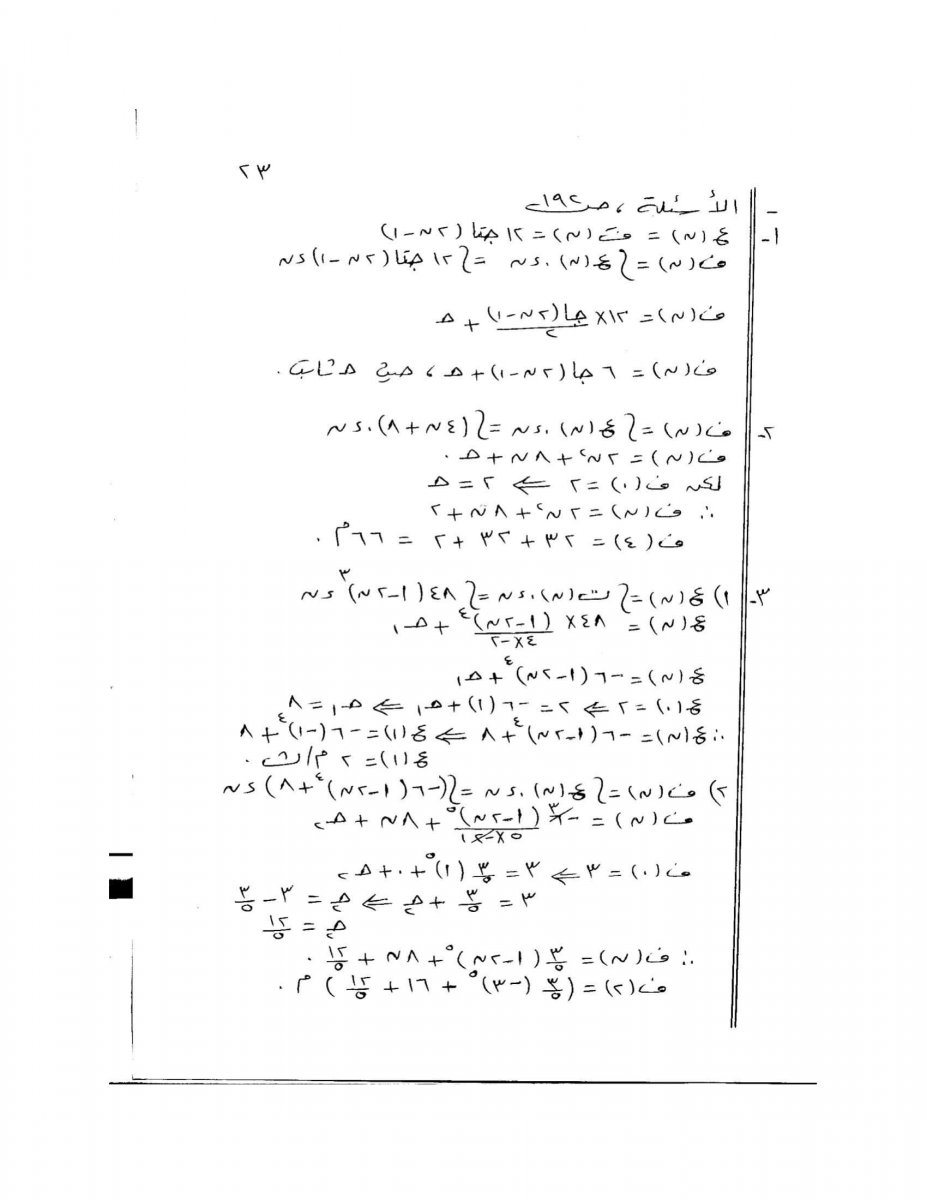 ٢٣
- الأسئلة ، ص١٩٢
١- ع(ن) = فَ(ن) = ١٢ جتا(٢ن-١)
ف(ن) = ∫ع(ن).دن = ∫١٢ جتا(٢ن-١)دن
ف(ن) = ١٢× جا(٢ن-١)/٢ + جـ
ف(ن) = ٦ جا(٢ن-١) + جـ ، حيث جـ ثابت .
٢- ف(ن) = ∫ع(ن).دن = ∫(٤ن+٨).دن
ف(ن) = ٢ن² + ٨ن + جـ .
لكن ف(٠) = ٢ ⇐ ٢ = جـ
∴ ف(ن) = ٢ن² + ٨ن + ٢
ف(٤) = ٣٢ + ٣٢ + ٢ = ٦٦م .
٣- ١) ع(ن) = ∫ت(ن).دن = ∫٤٨(١-٢ن)³دن
ع(ن) = ٤٨× (١-٢ن)⁴/٤×-٢ + جـ₁
ع(ن) = -٦(١-٢ن)⁴ + جـ₁
ع(٠) = ٢ ⇐ ٢ = -٦(١) + جـ₁ ⇐ جـ₁ = ٨
∴ ع(ن) = -٦(١-٢ن)⁴ + ٨ ⇐ ع(١) = -٦(-١)⁴ + ٨
ع(١) = ٢ م/ث .
٢) ف(ن) = ∫ع(ن).دن = ∫(-٦(١-٢ن)⁴ + ٨)دن
ف(ن) = -٦³ (١-٢ن)⁵/٥×-٢١ + ٨ن + جـ₂
ف(٠) = ٣ ⇐ ٣ = ٣/٥ (١)⁵ + ٠ + جـ₂
٣ = ٣/٥ + جـ₂ ⇐ جـ₂ = ٣ - ٣/٥
جـ₂ = ١٢/٥
∴ ف(ن) = ٣/٥ (١-٢ن)⁵ + ٨ن + ١٢/٥ .
ف(٢) = (٣/٥ (-٣)⁵ + ١٦ + ١٢/٥) م .